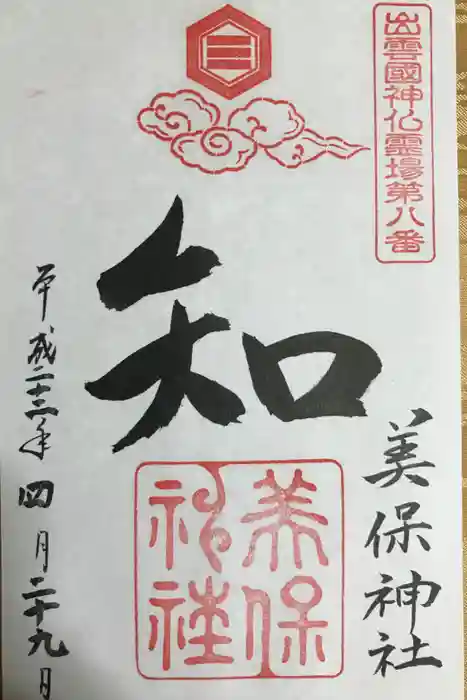 三
出雲國神仏霊場第八番
美保神社
知
美保
神社
平成二十三年四月二十九日